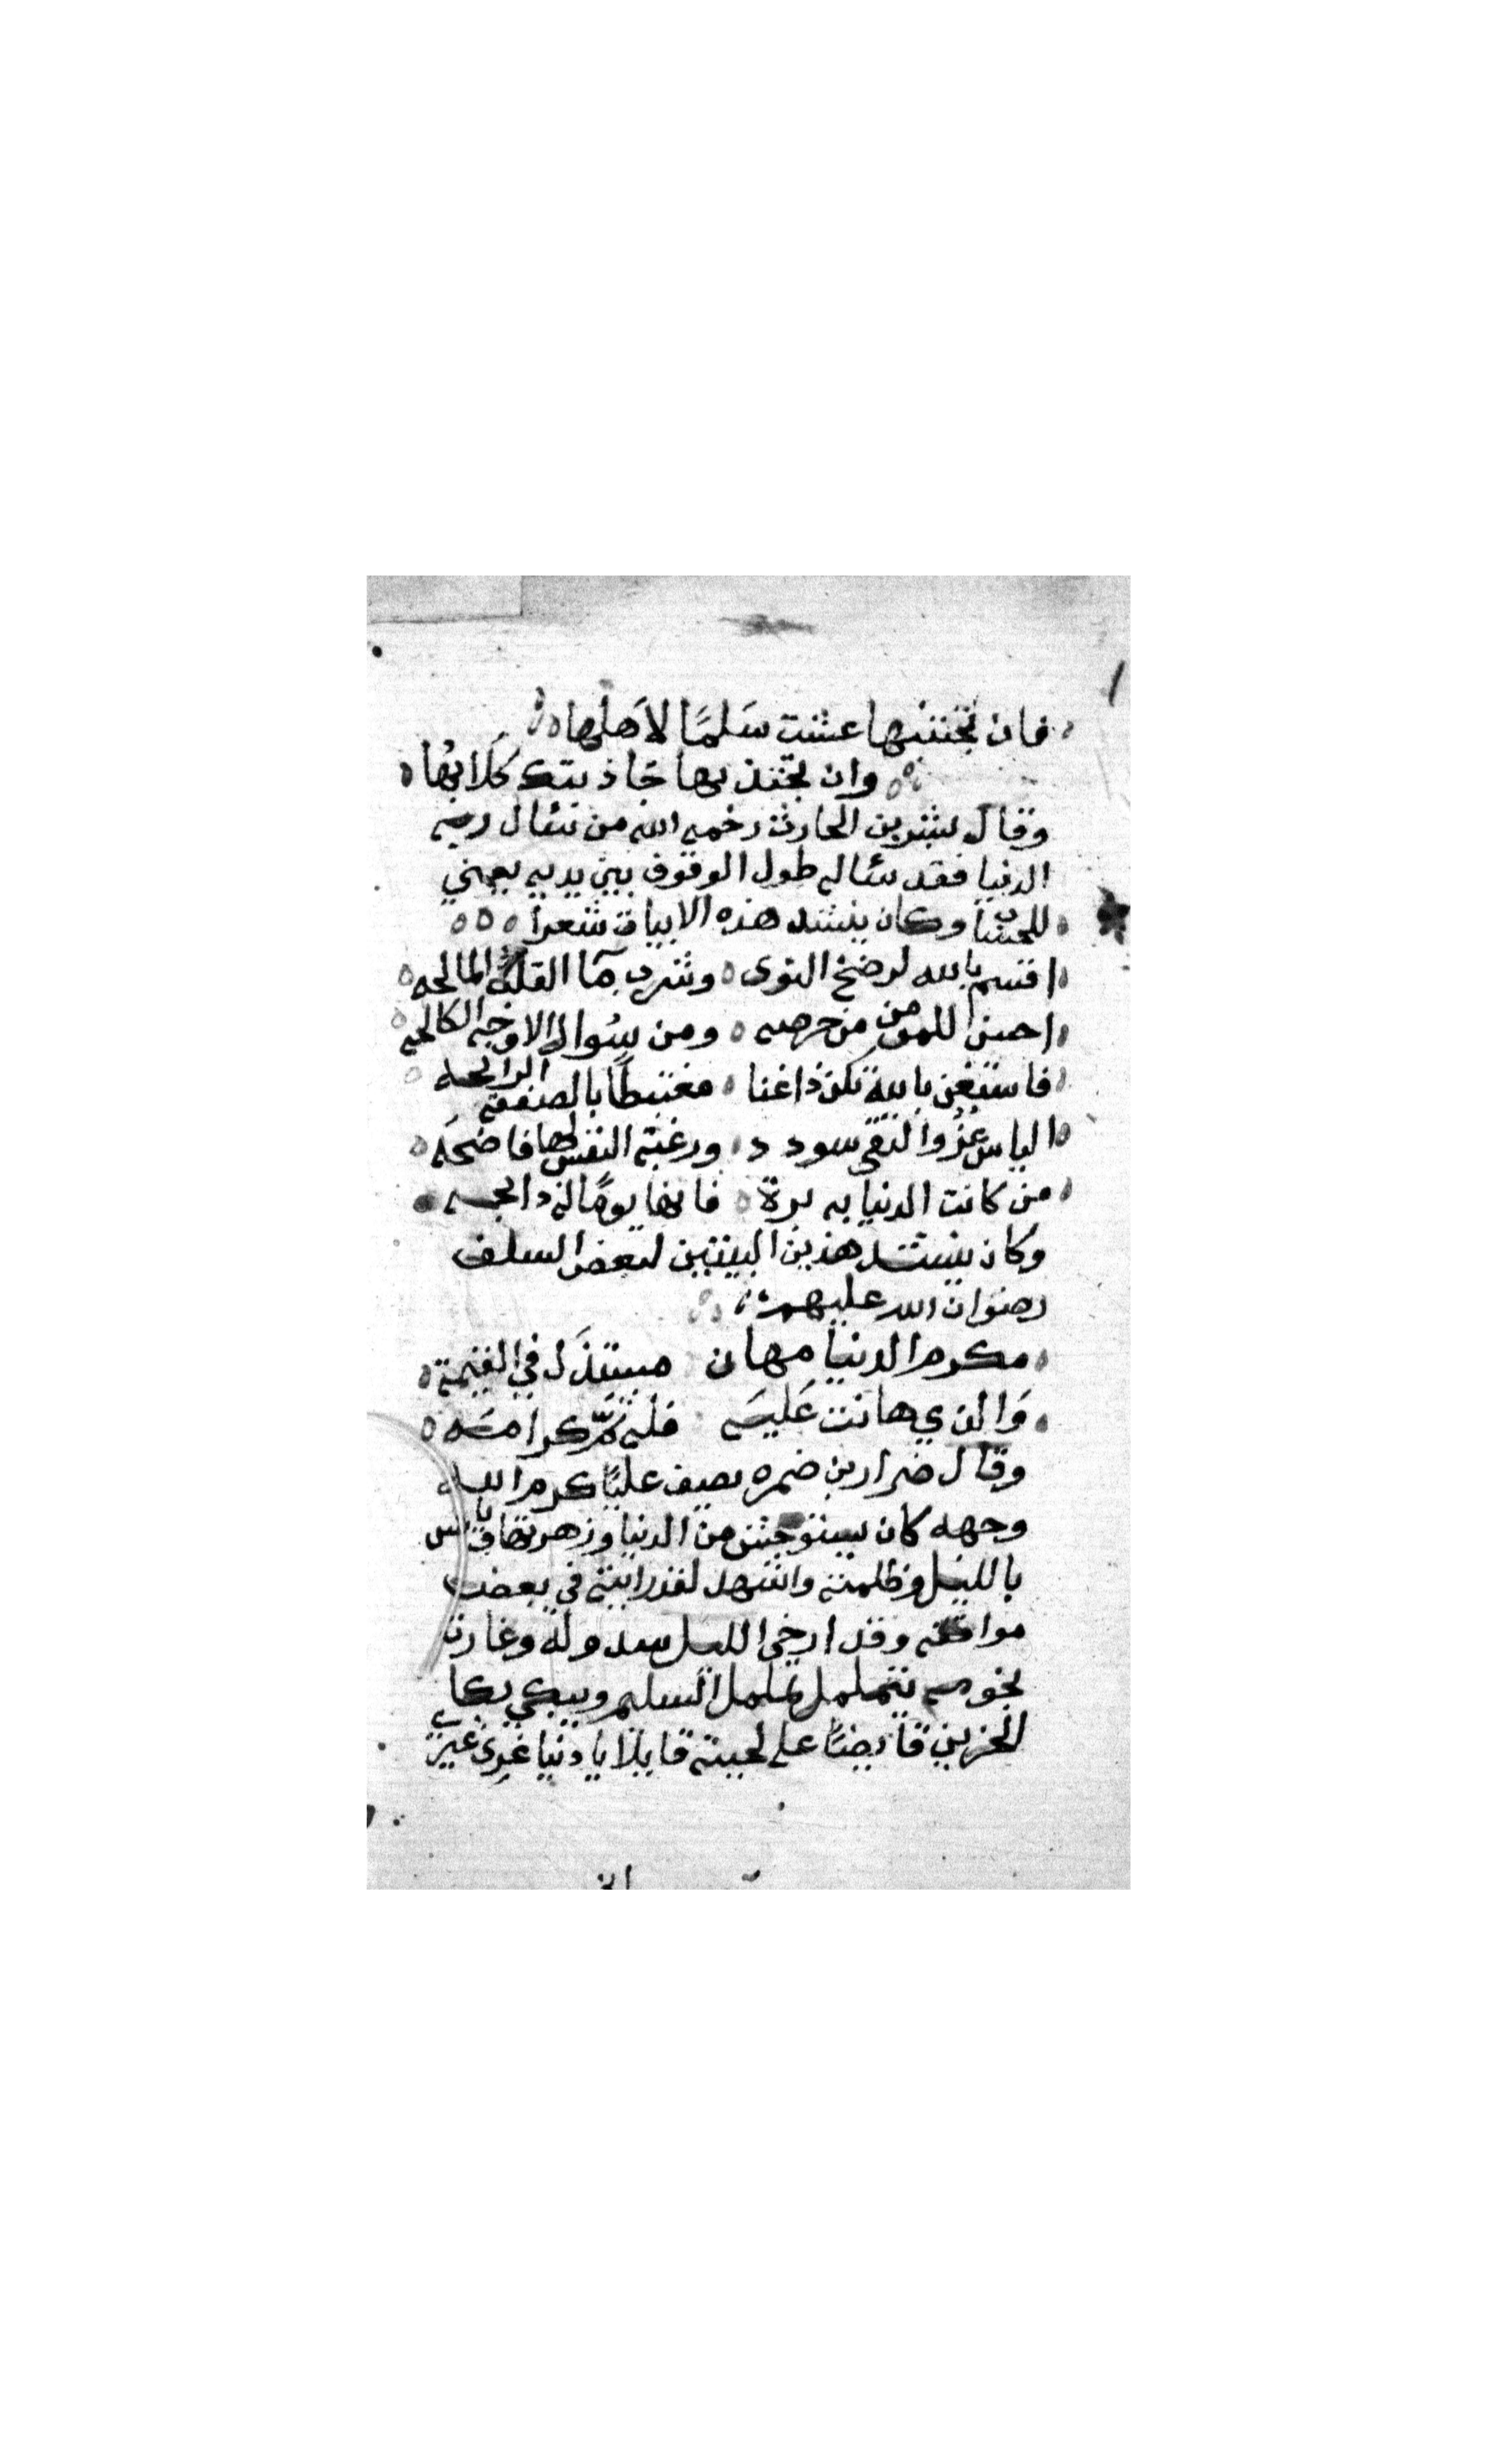 فان تجتنبها عشت سَلمًا لاَهلها
وان تجتذبها جاذبتك كَلابُها
وقال بشر بن الحارث رحمه الله من سئال ربه
الدنيا فقد سئاله طول الوقوف بين يديه يعني
للحساب وكان ينشد هذه الابيات شعرا
اقسم بالله لرضخ النوى وشرب مآ القلة المالحه
احسن للمومن من حرصه ومن سُوال الاوجه الكالحه
فاستغن بالله تكن ذا غنا مغتبطًا بالصفقه الرابحه
الياس عزُ والتقى سودد ورغبة النفس لها فاضحَه
من كانت الدنيا به برة فانها يومًا له ذابحه
وكان ينشد هذين البيتين لبعض السلف
رضوان الله عليهم
مكرم الدنيا مهان مستذَل في القيمة
وَالذي هانت عَليه فله ثمّ كرامه
وقال ضرار بن ضمره يصف عليًا كرم الله
وجهه كان يستوحش من الدنيا وزهرتها ويانس
بالليل وظلمته واشهد لقد رايته في بعض
مواقفه وقد ارخى الليل سدوله وغارت
نجومه يتململ تململ السليم ويبكي بكا
الحزين قابضًا على لحيته قايلا يا دنيا غرِي غيري